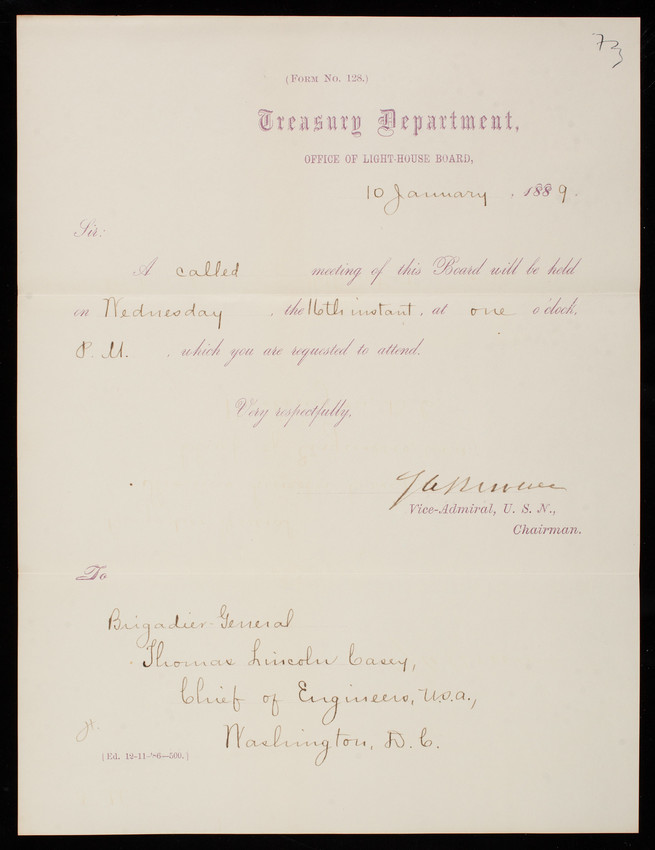 73
(FORM NO. 128.)
Treasury Department,
OFFICE OF LIGHT-HOUSE BOARD,
10 January, 1889.
Sir:
A called meeting of this Board will be held
on Wednesday, the 16th instant, at one o'clock,
P. M., which you are requested to attend.
Very respectfully,
Vice-Admiral, U. S. N.,
Chairman.
To
Brigadier-General
Thomas Lincoln Casey,
Chief of Engineers, U.S.A.,
Washington, D. C.
[Ed. 12-11-'86—500.]